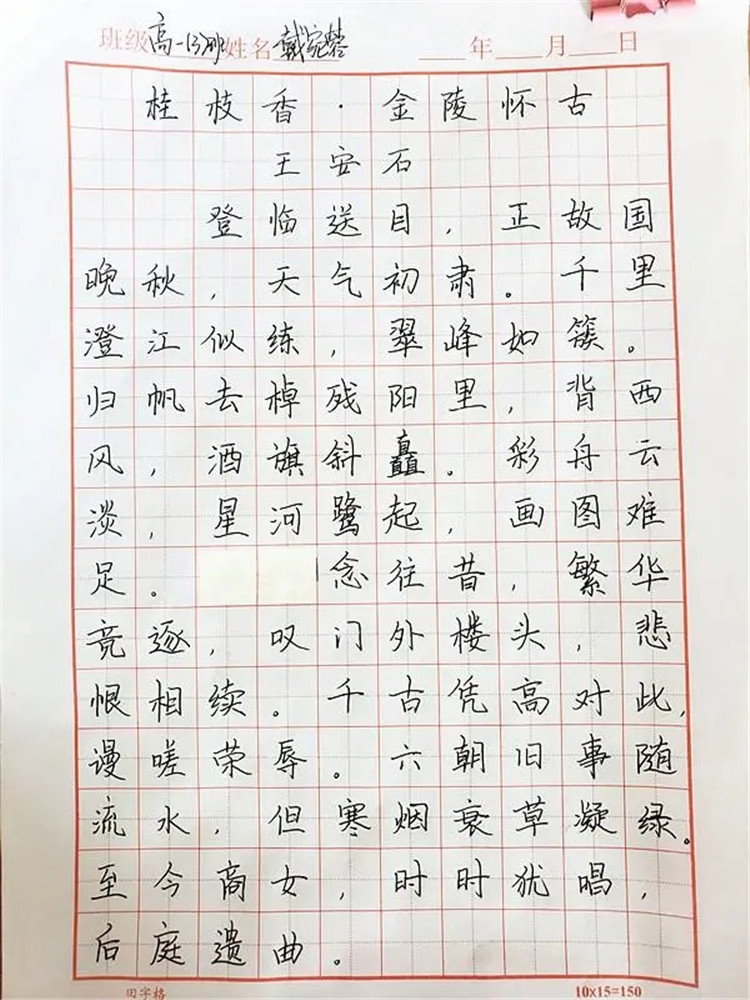 班级高一(3)班姓名戴宛蓉 年 月 日
桂枝香·金陵怀古
王安石
登临送目，正故国
晚秋，天气初肃。千里
澄江似练，翠峰如簇。
归帆去棹残阳里，背西
风，酒旗斜矗。彩舟云
淡，星河鹭起，画图难
足。念往昔，繁华
竞逐，叹门外楼头，悲
恨相续。千古凭高对此，
谩嗟荣辱。六朝旧事随
流水，但寒烟衰草凝绿。
至今商女，时时犹唱，
后庭遗曲。
田字格 10x15=150